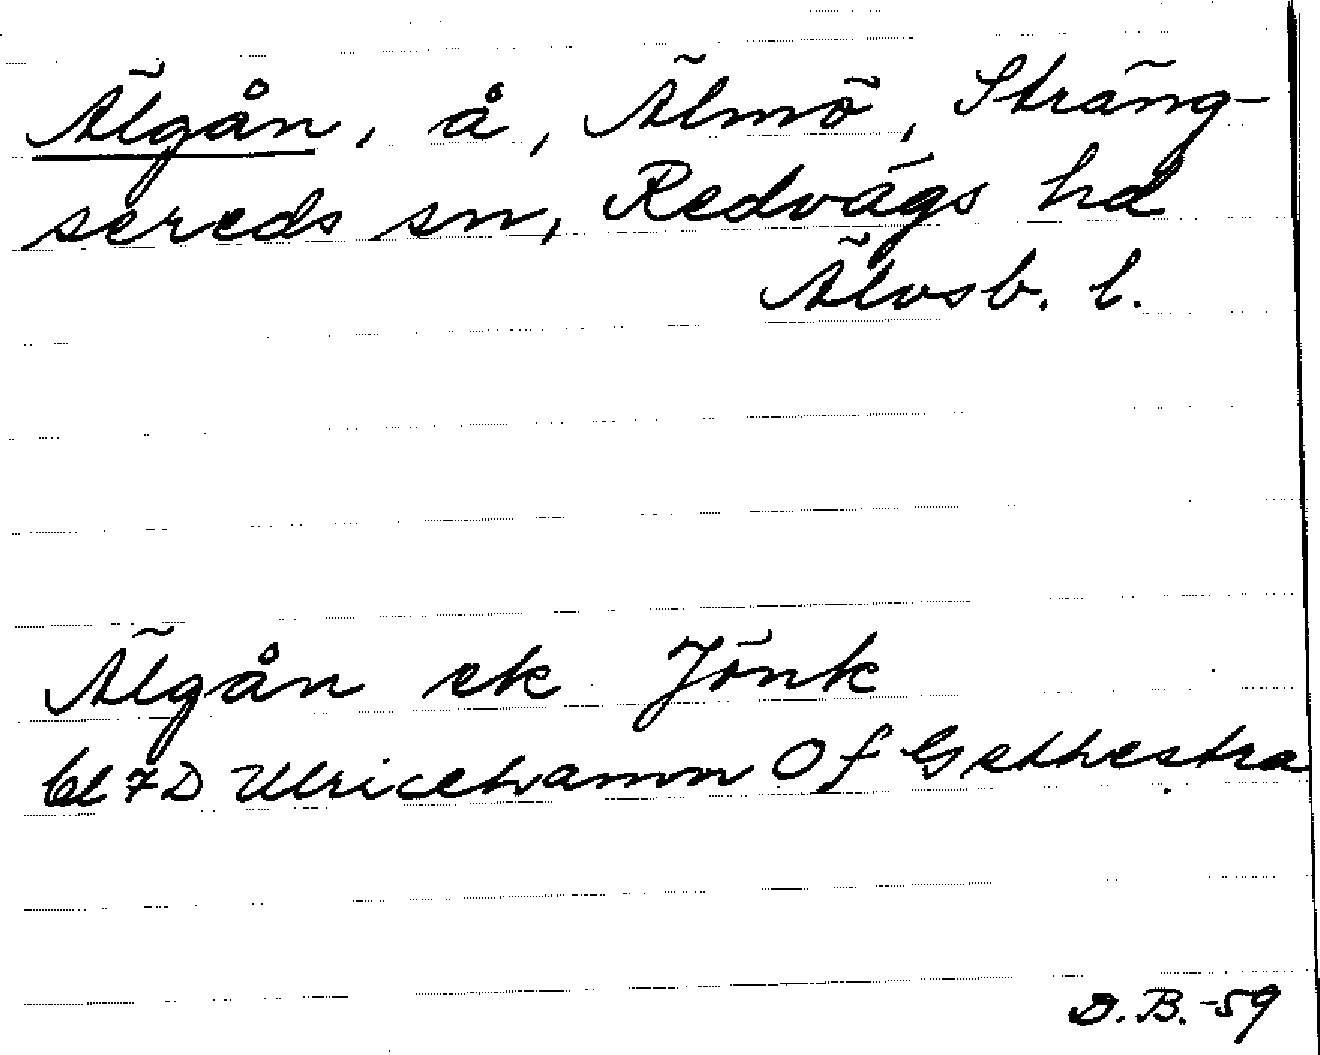 Älgån, å, Älmö, Sträng-
sereds sn, Redvägs hd
Älvsb. l.
Älgån ek Jönk
bl 7D Ulricehamn Of Gethestra
D.B.-59